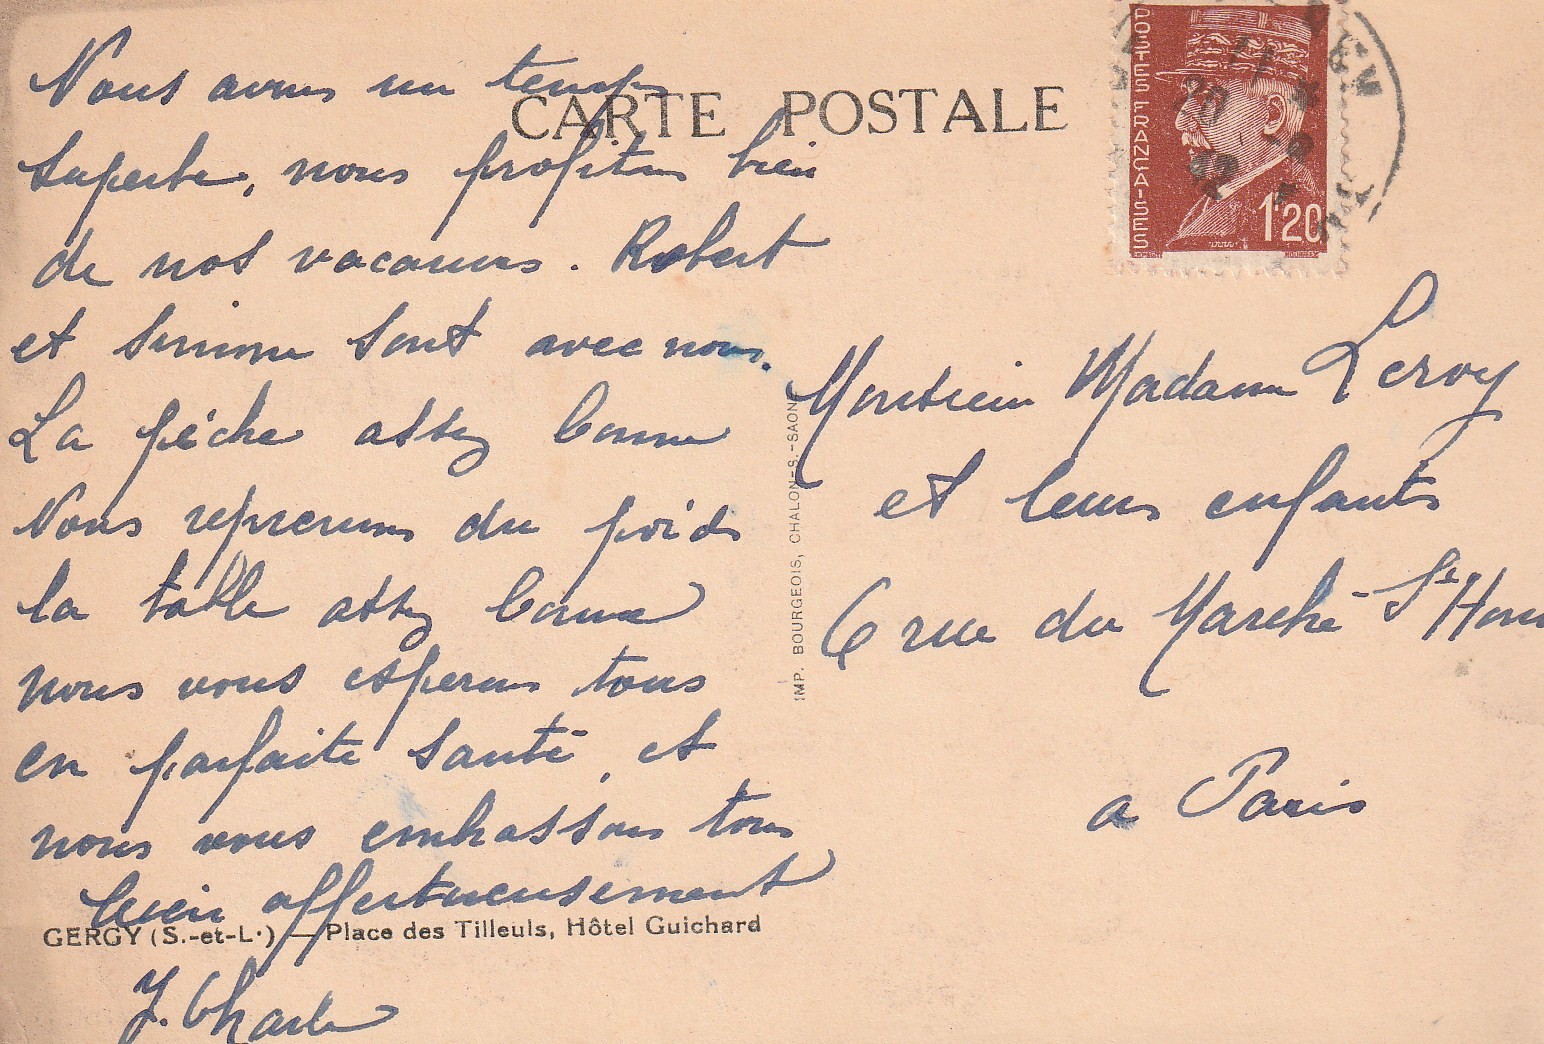 CARTE POSTALE
Nous avons un temps
superbe, nous profitons bien
de nos vacances. Robert
et Simone sont avec nous.
La pêche assez bonne
Nous reprenons du poids
la table assez bonne
nous vous esperons tous
en parfaite santé, et
nous vous embrassons tous
bien affectueusement
J. Charles
GERGY (S.-et-L.) — Place des Tilleuls, Hôtel Guichard
IMP. BOURGEOIS, CHALON-S.-SAONE
POSTES FRANÇAISES
1F20
20
42
Monsieur Madame Leroy
et leurs enfants
6 rue du Marché St Hon
a Paris